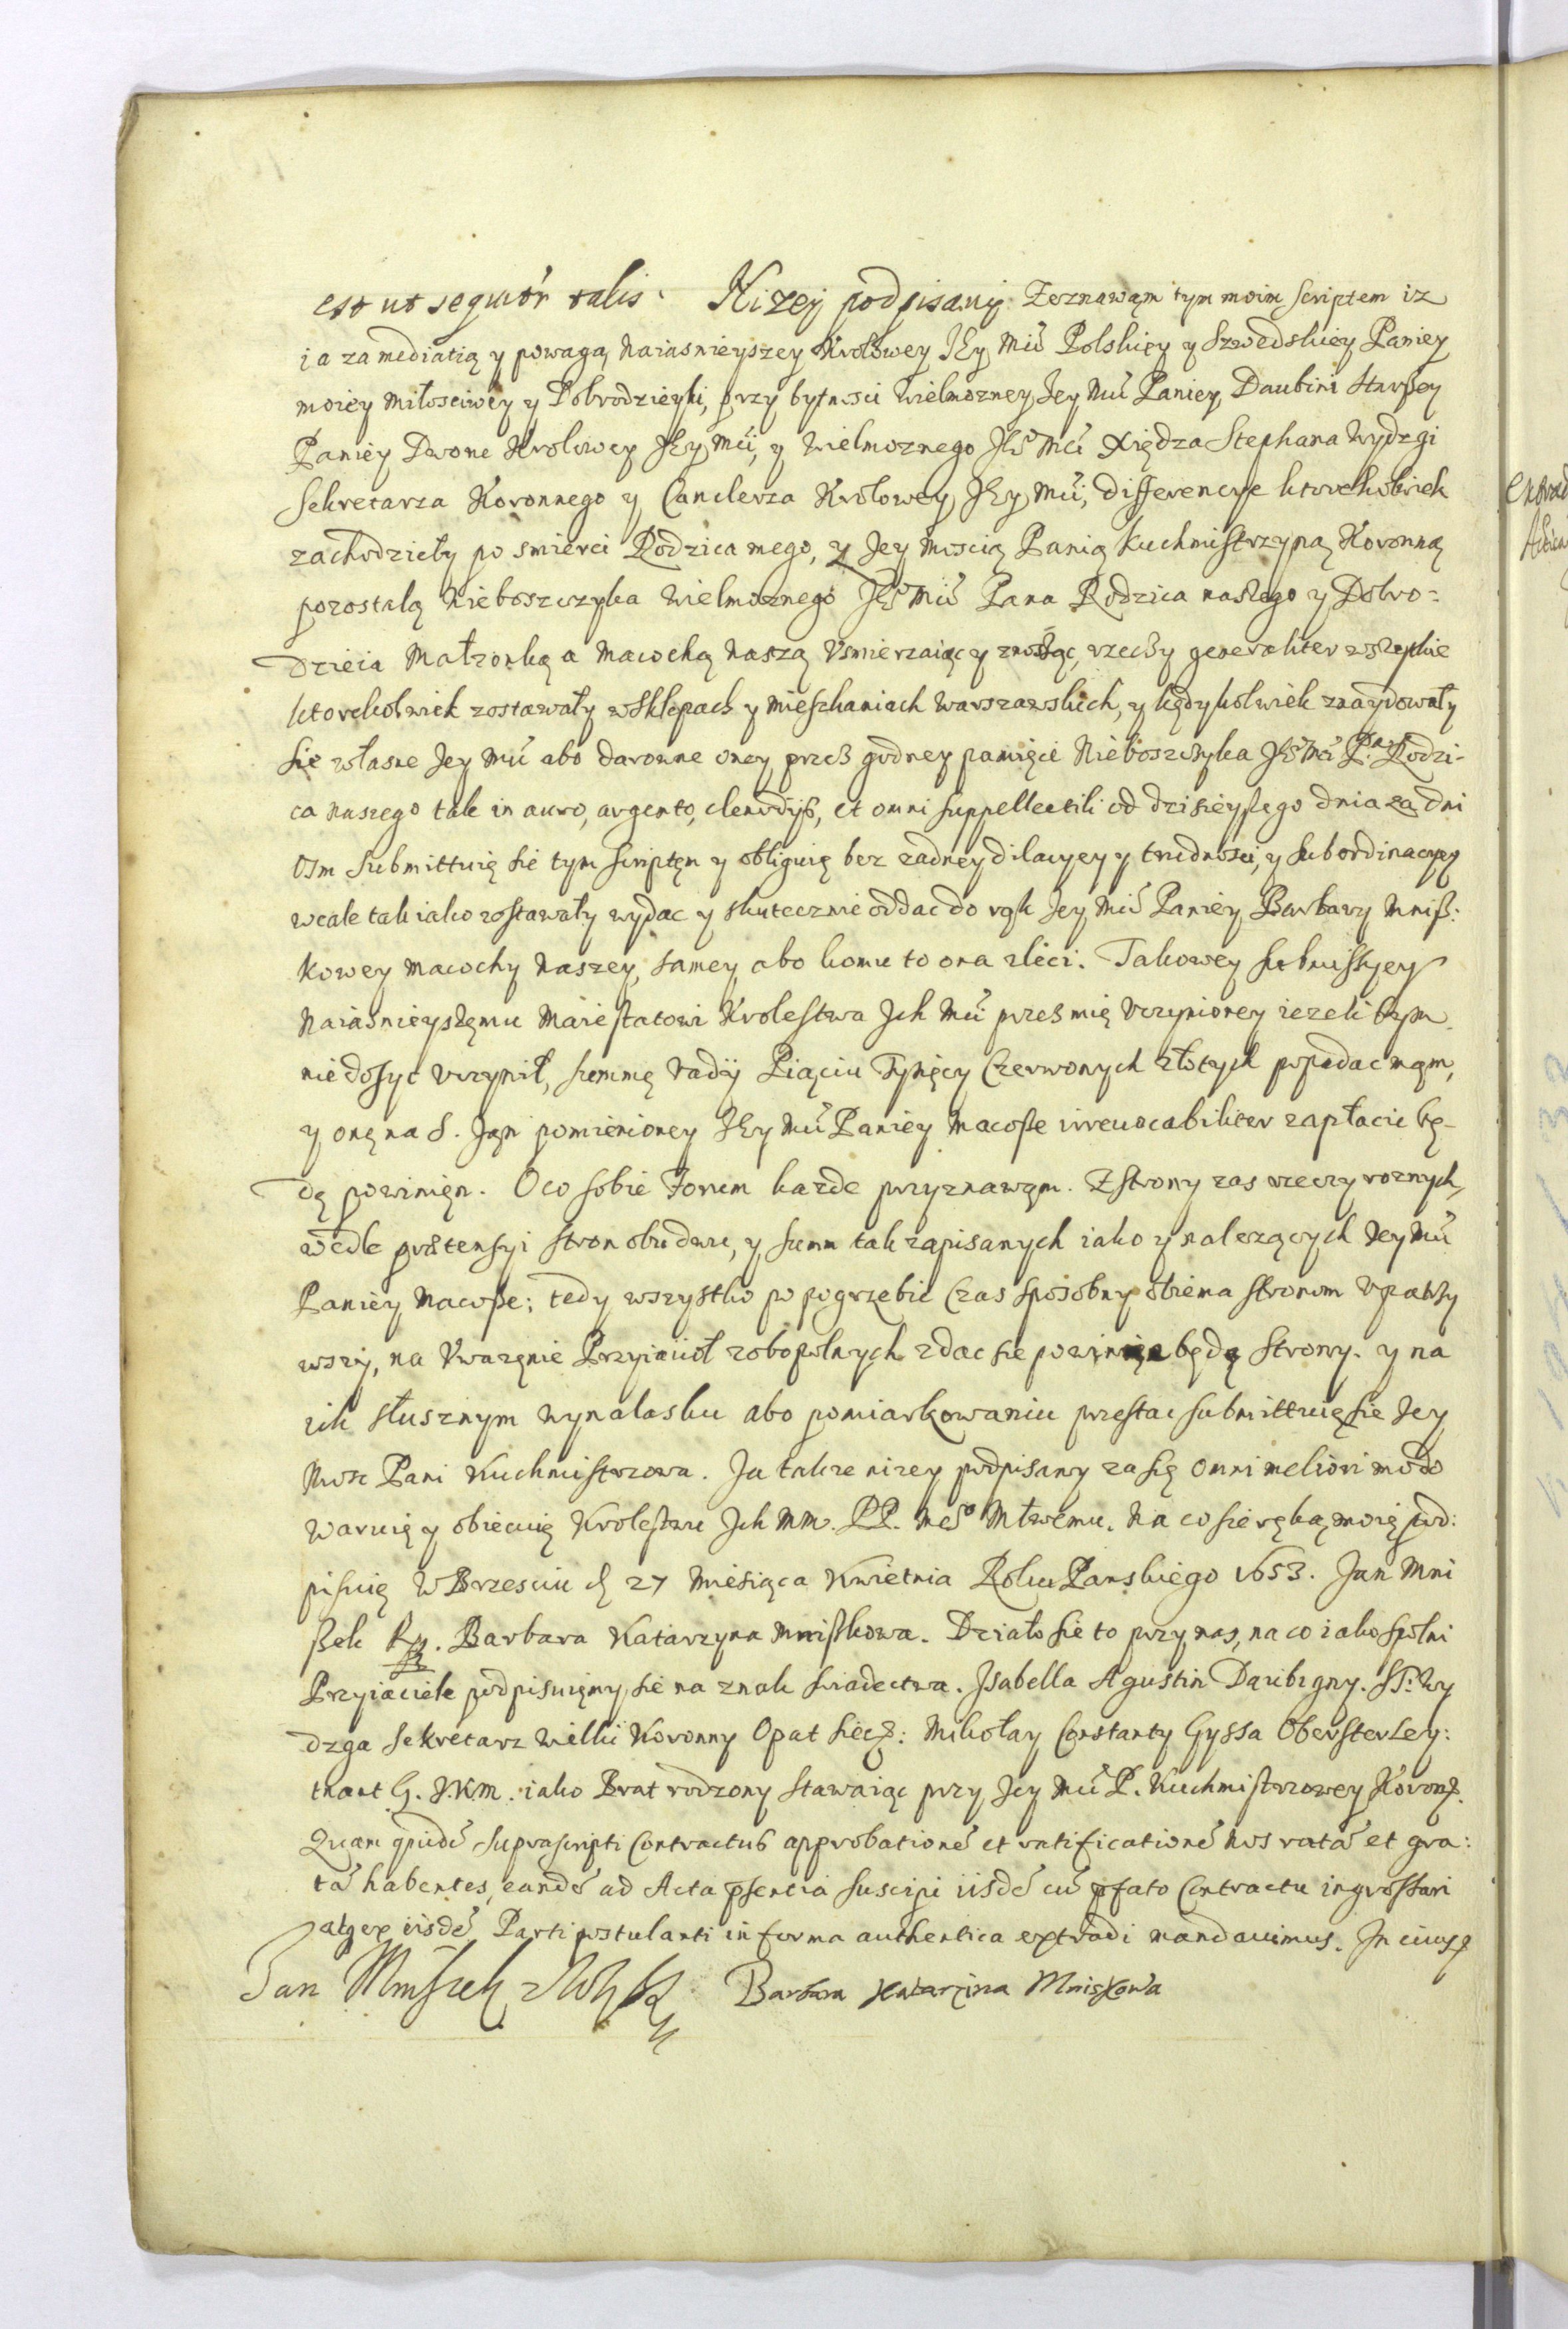 est ut sequitúr talis. Nizey podpisany Zeznawąm tym moim scriptem iz
ia za mediatią y powagą Naiasnieyszey Krolowey Jey Mći Polskiey y Szwedskiey Paniey
moiey Miłosciwey y Dobrodzieyki, przy bytnosci Wielmozney Jey Mći Paniey Daubini Starszey
Paniey Dworu Krolowey Jey Mći, y Wielmoznego Jeo Mći Xiędza Stephana Wydzgi
Sekretarza Koronnego y Canclerza Krolowey Jey Mći, differencye ktorekolwiek
zachodzieły po smierci Rodzica mego, z Jey Moscią Panią Kuchmistrzyną Koronną
pozostałą Nieboszczyka Wielmoznego Jeo Mći Pana Rodzica naszego y Dobro=
dzieia Małzonką a Macochą Naszą Vsmierzaiąc y znosząc, rzeczy generaliter wszytkie
ktorekolwiek zostawały w Sklepach y Mieszkaniach Warszawskich, y kędykolwiek znaydowały
sie własne Jey Mći abo darowne oney przesz godney pamięci Nieboszczyka Jeo Mći Pana Rodzi-
ca Naszego tak in auro, argento, clenodijs, et omni suppellectili od dzisieyszego dnia za dni
osm submittuię sie tym scriptęm y obliguię bez zadney dilacyey y trudnosci, y subordinacyey
wcale tak iako zostawały wydac y skutecznie oddac do rąk Jey Mći Paniey Barbary Mnisz:
kowey Macochy Naszey, samey abo komu to ona zleci. Takowey submissyey
Naiasnieyszęmu Maiestatowi Krolestwa Ich Mći przes mię vczynioney iezeli bym
nie dosyc vczynił, summę Vadij Piąciu Tysięcy Czerwonych złotych popadac mąm,
y onę na S. Jąn pomienioney Jey Mći Paniey Macosze irreuocabiliter zapłacic bę-
dę powinięn. O co sobie Forum kazde przyznawąm. Z strony zas rzeczy roznych,
wedle prætensyi stron obudwu, y summ tak zapisanych iako y nalezących Jey Mći
Paniey Macosze; tedy wszystko po pogrzebie Czas sposobny obiema stronom vpatrzy
wszy, na Vwazęnie Przyiaciół zobopolnych zdac sie powinne będą Strony. y na
ich słusznym wynalasku abo pomiarkowaniu przestac submittuię sie Jey
Mosc Pani Kuchmistrzowa. Ja takze nizey podpisany za się omni meliori modo
waruię y obiecuię Krolestwu Ich MM. PP. meo Młwemu. Na co sie ręką moią pod:
pisuię W Brzesciu d 27 Miesiąca Kwietnia Roku Panskiego 1653. Jan Mni
szek. Barbara Katarzyna Mniszkowa. Działo sie to przy nas, na co iako spolni
Przyiaciele podpisuięmy sie na znak swiadectwa. Isabella Agustin Daubigny. St: Wy
dzga Sekretarz Wielki Koronny Opat Siec: Mikołay Constanty Gyssa Obersterley:
tnant G. J.K.M. iako Brat rodzony stawaiąc przy Jey Mći P. Kuchmistrzowey Koron.
Quam quidē suprascripti Contractus approbationē et ratificationē nos ratā et gra:
tā habentes, eandē ad Acta pσentia suscipi iisdē cū pfato Contractu ingrossari
atqe iisdē Parti postulanti in forma authentica extradi mandauimus. In cuius
Jan Mniszek Barbara Katarzina Mniszkowa